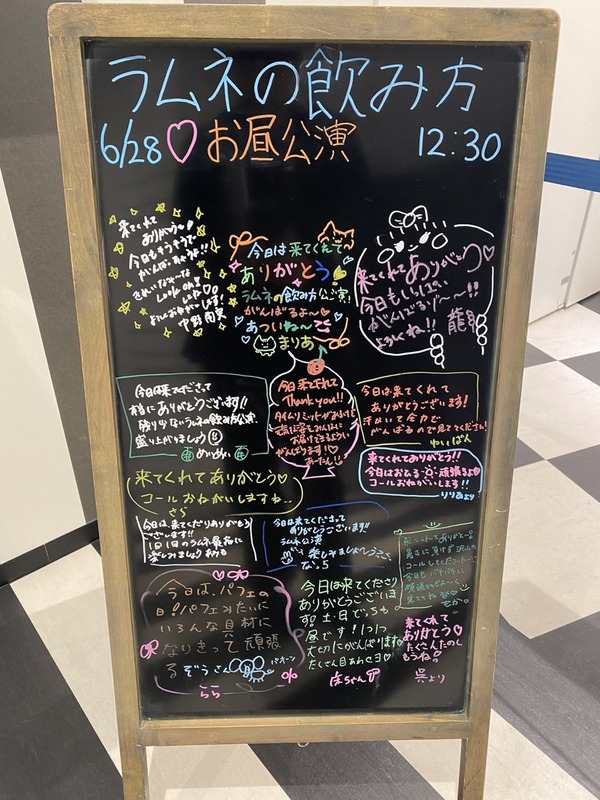 ラムネの飲み方
6/28♡お昼公演 12:30
来てくれて
ありがとう〜!
今日もそうそうで
がんばっちゃうぞ!!
Look on♡
よろしくおねがいします!
中野
今日は来てくれて
ありがとう
ラムネの飲み方公演!
がんばるよ〜♡
あついね〜
まりあ
来てくれてありがとう♡
今日もいっぱい
がんばるゾ〜!!
よろしくね!! 龍
今日は来てくださって
本当にありがとうございます!!
残り少ないラムネの飲み方公演
盛り上がりましょう
めいめい
今日来てくれて
Thank you!!
タイムリミットが
みんなに
お届けできるよう
がんばります!!
あーたん
今日は来てくれて
ありがとうございます!
全力で
がんばるので見ててください!
ゆいぱん
来てくれてありがとう♡
コールおねがいしますね...
さら
来てくれてありがとう!!
今日はおひる 頑張るよ
コールおねがいします!!
りりみより
今日は来てくださりありがとう
ございます!!
1日1日のラムネ公演を
楽しみましょう
今日は来てくださって
ありがとうございます!!
ラムネ公演
楽しみましょうっ
コールしてくださったら
今日も
頑張れるよ〜
見ててね
今日は、パフェの
日!パフェみたいに
いろんな具材に
なりきって頑張
る ぞうさん パオーン
らら
今日は来てくださり
ありがとうございま
す!土・日で、5ちゃ
昼です!1つ1つ
大切にがんばります♡
たくさん目あわせヨ♡
ちゃん
来てくれて
ありがとう♡
たくさんたのし
もうね?
呉より